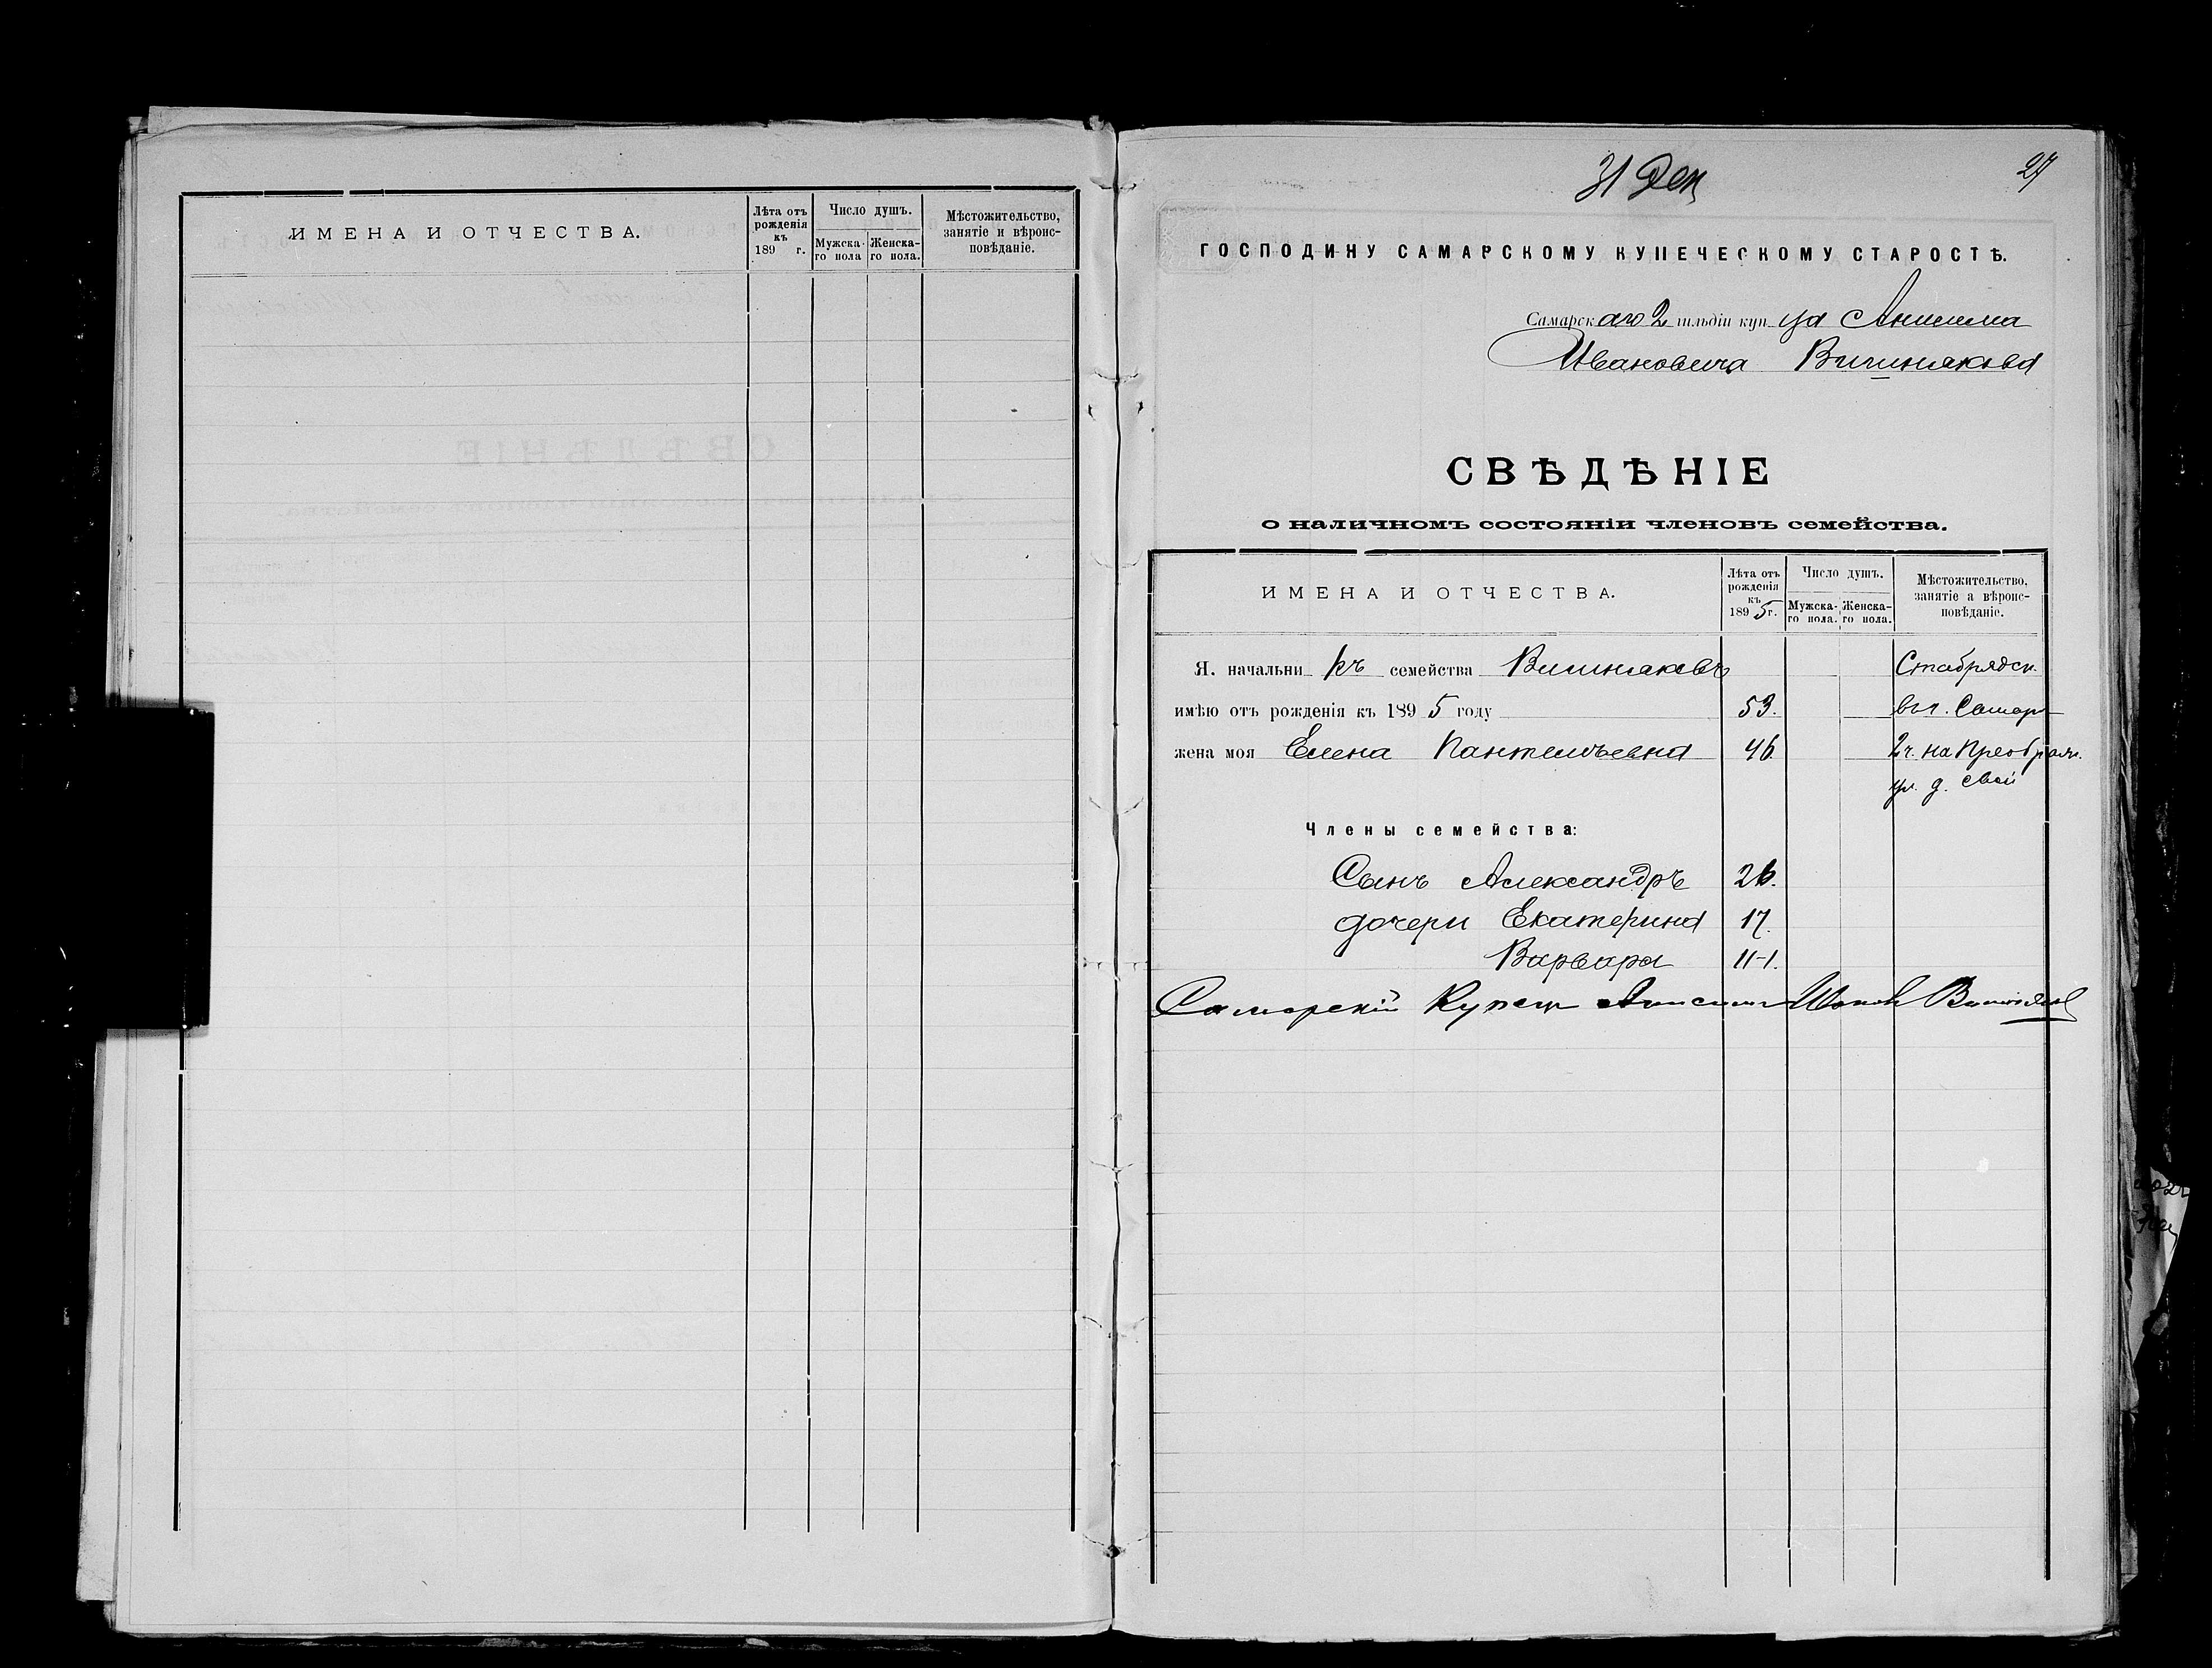 ИМЕНА И ОТЧЕСТВА.
Лѣта отъ рожденія къ 189 г.
Число душъ.
Мужскаго пола
Женскаго пола.
Мѣстожительство, занятіе и вѣроисповѣданіе.
31 Дек
27
ГОСПОДИНУ САМАРСКОМУ КУПЕЧЕСКОМУ СТАРОСТѢ.
Самарскаго 2 гильдіи купца Анисима
Ивановича Вишнякова
СВѢДѢНІЕ
о наличномъ состояніи членовъ семейства.
ИМЕНА И ОТЧЕСТВА.
Лѣта отъ рожденія къ 1895 г.
Число душъ.
Мужскаго пола.
Женскаго пола.
Мѣстожительство, занятіе а вѣроисповѣданіе.
Я. начальникъ семейства Вишняковъ
имѣю отъ рожденія къ 1895 году 53.
вѣ г. Самар
жена моя Елена Пантелѣевна 46 2 ч. на Преображ.
ул. д. свой
Члены семейства:
Сынъ Александръ 26.
дочери Екатерина 17.
Варвара 11-1.
Самарскій Купец Анисим Иванов Вишняков